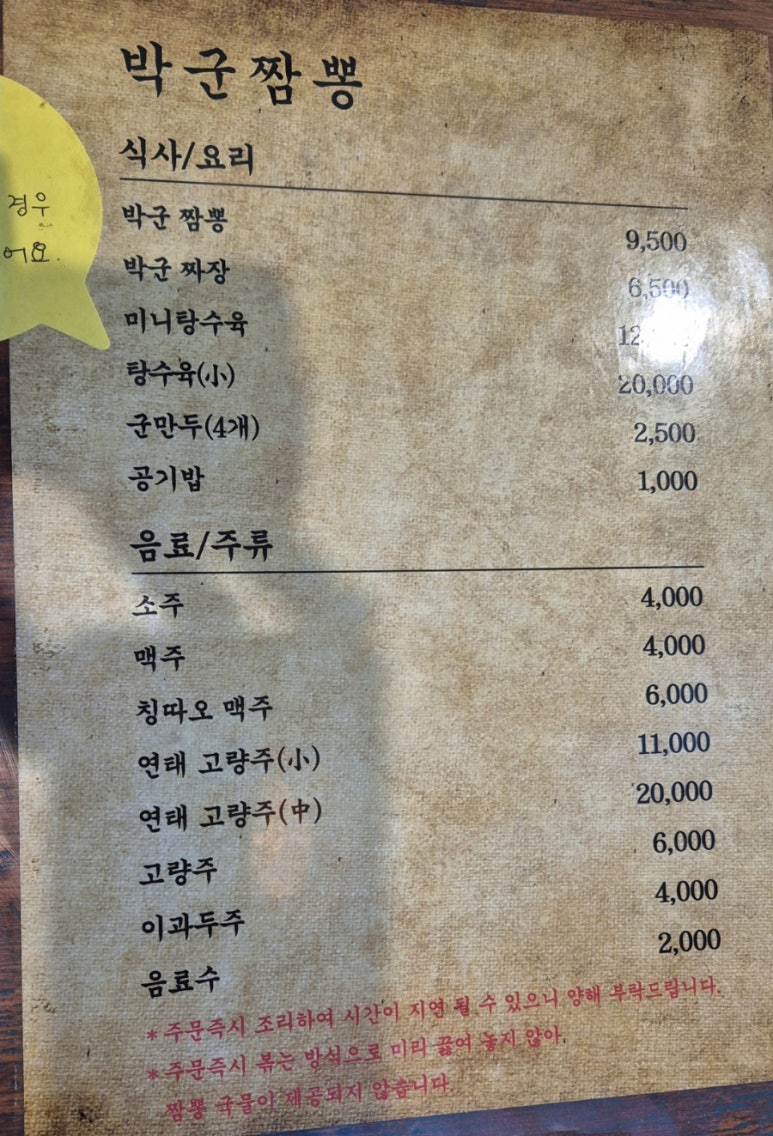 박군짬뽕
식사/요리
박군 짬뽕 9,500
박군 짜장 6,500
미니탕수육
탕수육(小) 20,000
군만두(4개) 2,500
공기밥 1,000
음료/주류
소주 4,000
맥주 4,000
칭따오 맥주 6,000
연태 고량주(小) 11,000
연태 고량주(中) 20,000
고량주 6,000
이과두주 4,000
음료수 2,000
*주문즉시 조리하여 시간이 지연 될 수 있으니 양해 부탁드립니다.
*주문즉시 볶는 방식으로 미리 끓여 놓지 않아,
짬뽕 국물이 제공되지 않습니다.
경우
어요.